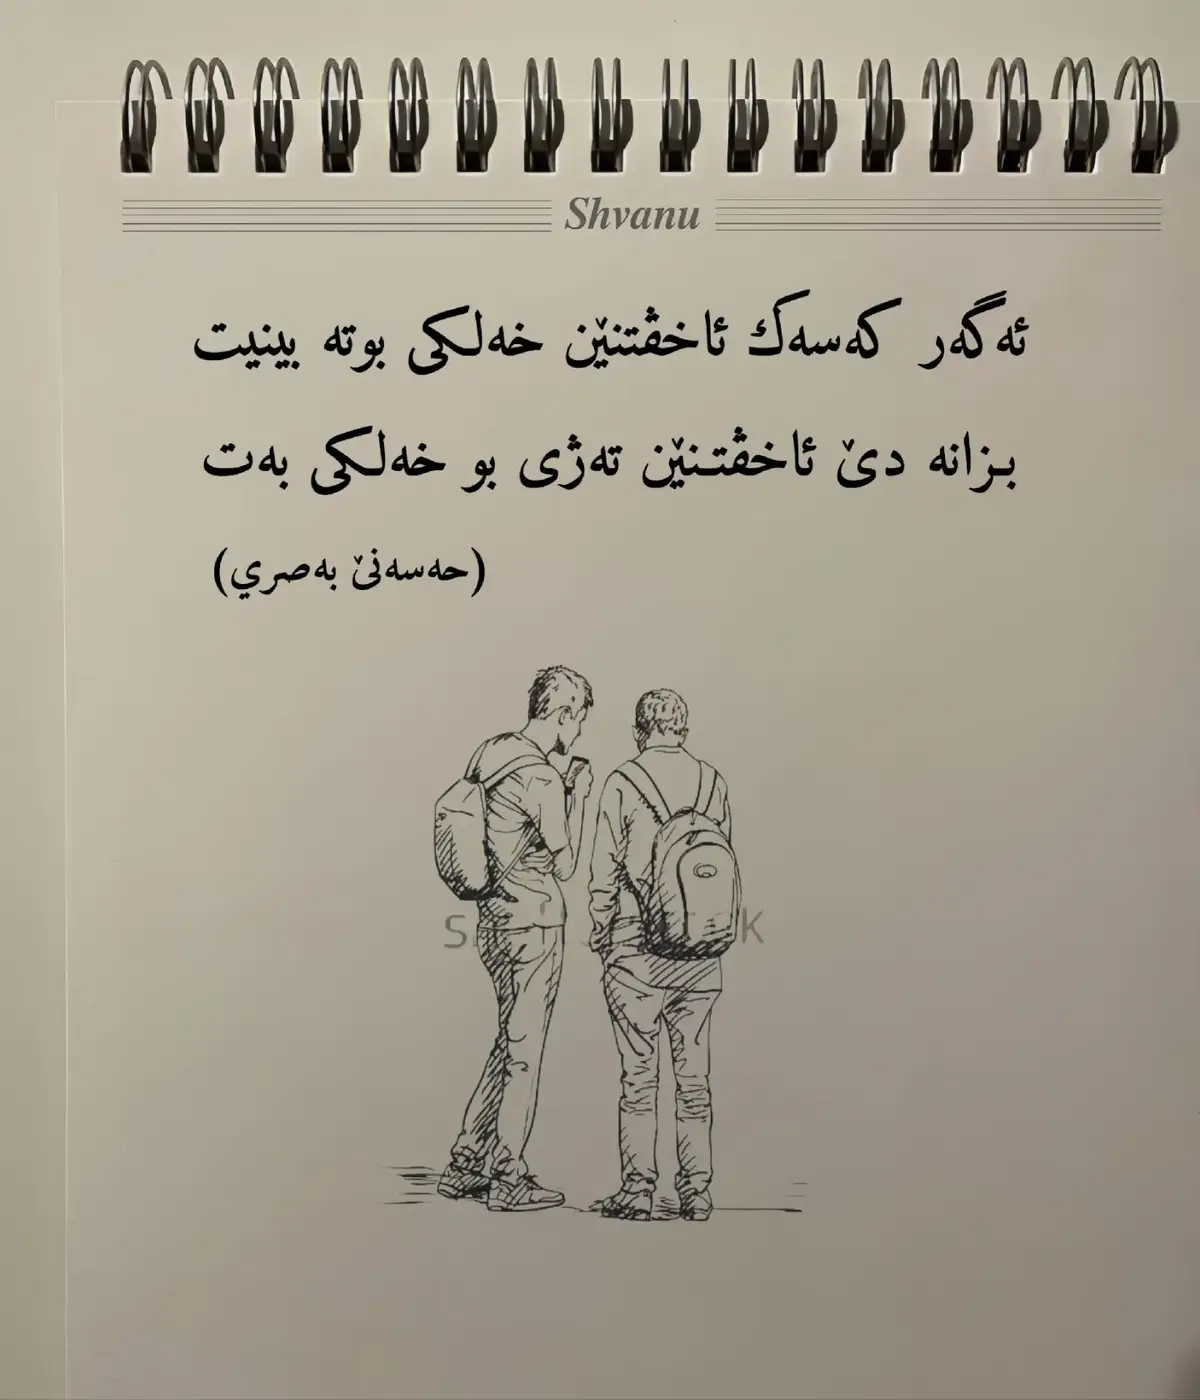 Shvanu
ئەگەر کەسەك ئاخڤتنێن خەلکی بوتە بینیت
بزانە دێ ئاخڤتنێن تەژی بو خەلکی بەت
(حەسەنێ بەصري)